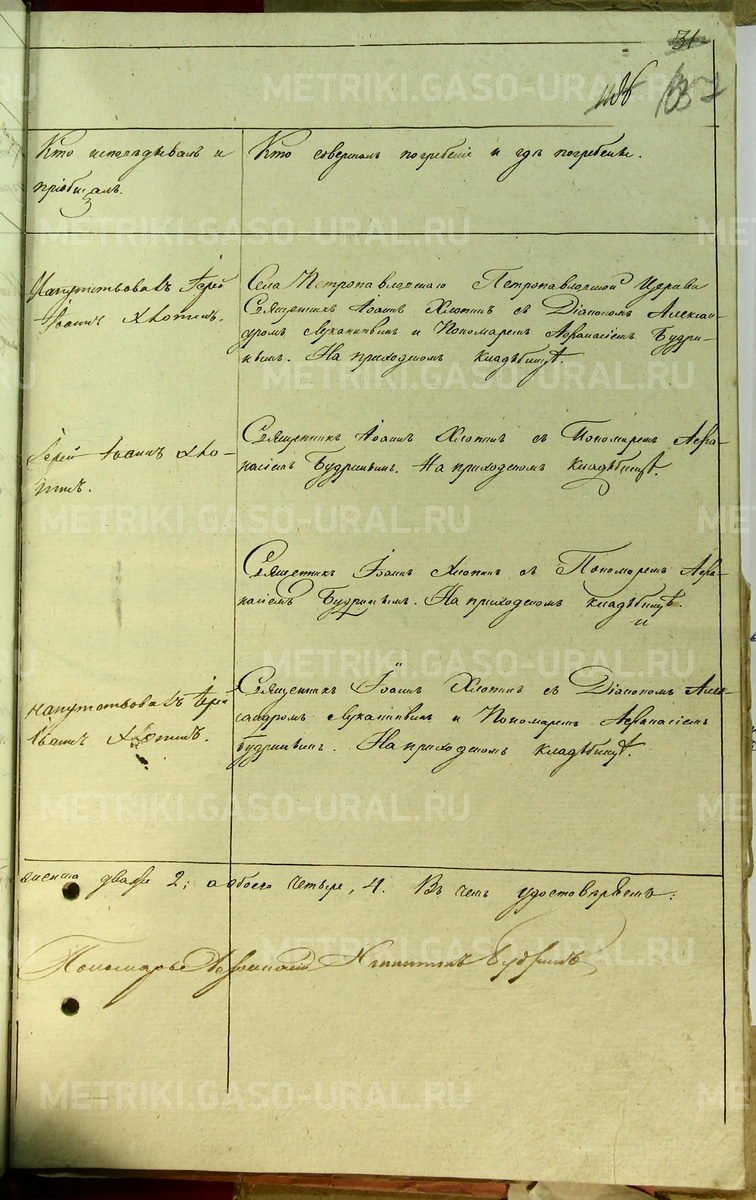 31
Кто исповѣдывалъ и
пріобщалъ.
Кто совершалъ погребеніе и гдѣ погребены.
Напутствовалъ Іерей
Іоаннъ Хлопинъ.
Села Петропавловскаго Петропавловской Церкви
Священникъ Іоаннъ Хлопинъ съ Діакономъ Алексан-
дромъ Луканинымъ и Пономаремъ Афанасіемъ Будри-
нымъ. На приходскомъ кладбищѣ.
Іерей Іоаннъ Хло-
пинъ.
Священникъ Іоаннъ Хлопинъ съ Пономаремъ Афа-
насіемъ Будринымъ. На приходскомъ кладбищѣ.
Священникъ Іоаннъ Хлопинъ съ Пономаремъ Афа-
насіемъ Будринымъ. На приходскомъ кладбищѣ.
Напутствовалъ Іерей
Іоаннъ Хлопинъ.
Священникъ Іоаннъ Хлопинъ съ Діакономъ Алек-
сандромъ Луканинымъ и Пономаремъ Афанасіемъ
Будринымъ. На приходскомъ кладбищѣ.
двое 2; а обоего четыре, 4. Въ чемъ удостовѣряемъ:
Пономарь Афанасій Никитинъ Будринъ
METRIKI.GASO-URAL.RU